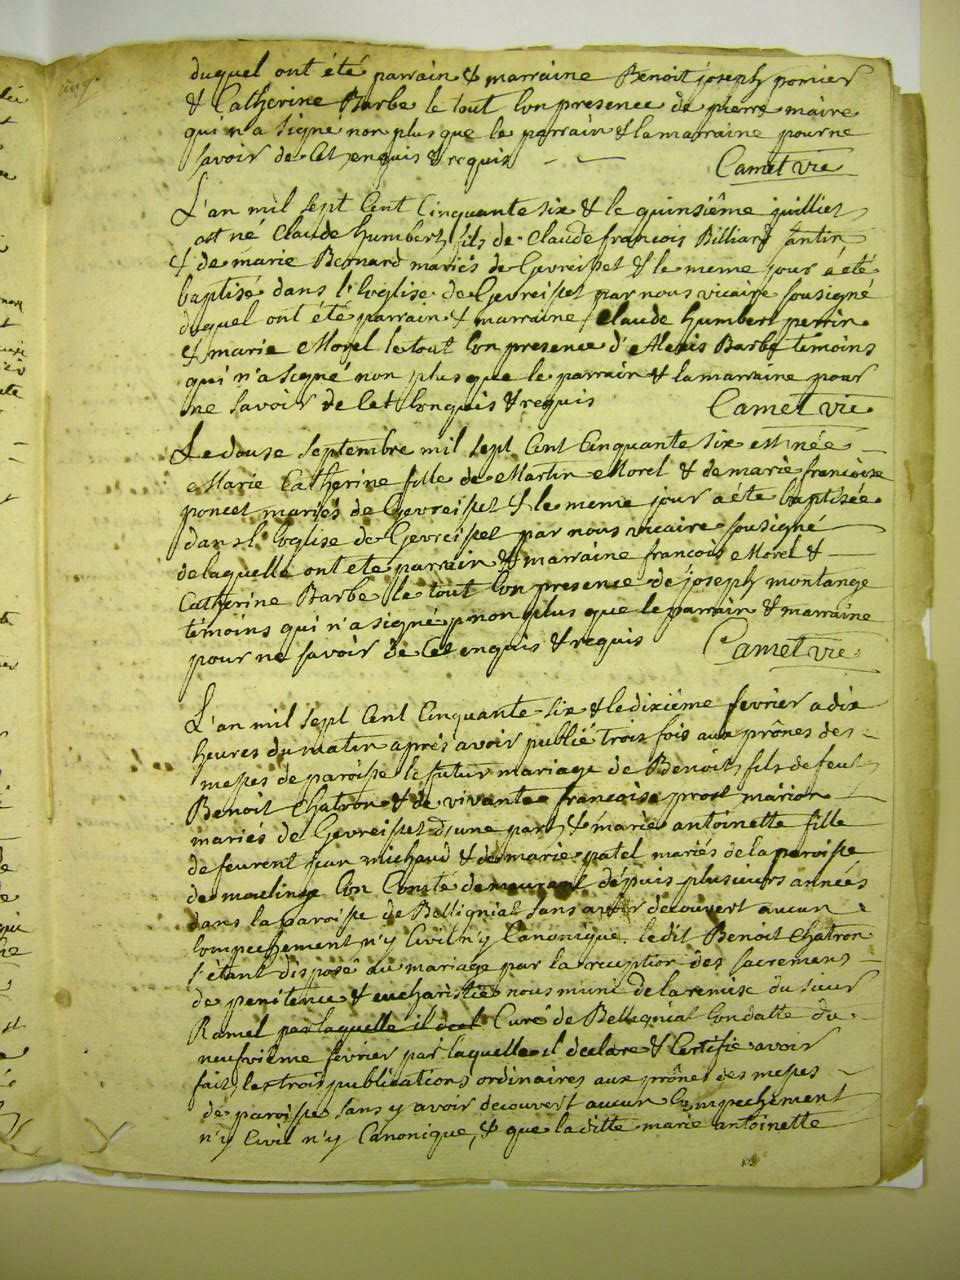 duquel ont été parrain & marraine Benoit joseph pomier
& Catherine Barbe le tout En presence de pierre maire
qui n'a signé non plus que le parrain & la marraine pour ne
savoir de Cet enquis & requis Camet vic
L'an mil sept Cent Cinquante six & le quinsiême juilliet
est né Claude humbert fils de Claude francois Billiard Santin
& de marie Bernard mariés de Gevreisset & le meme jour a été
baptisé dans l'Eglise de Gevreisset par nous vicaire sousigné
duquel ont été parrain & marraine Claude humbert perrin
& marie Morel le tout En presence d'Alexis Barbe témoins
qui n'a signé non plus que le parrain & la marraine pour
ne savoir de Cet Enquis & requis Camet vic
Le douse septembre mil sept Cent Cinquante six est née
Marie Catherine fille de Martin Morel & de marie francoise
poncet mariés de Gevreisset & le meme jour a éte baptisée
dans l'Eglise de Gevreisset par nous vicaire sousigné
de laquelle ont ete parrain & marraine francois Morel &
Catherine Barbe le tout En presence de joseph montange
témoins qui n'a signé non plus que le parrain & marraine
pour ne savoir de Cet enquis & requis Camet vic
L'an mil sept Cent Cinquante six & le dixiéme fevrier a dix
heures du matin aprés avoir publié trois fois aux prônes des
messes de paroisse le futur mariage de Benoit fils de feut
Benoit Chatron & de vivante francoise prost marion
mariés de Gevreisset d'une part & marie antoinette fille
de feurent jean michaud & de marie patel mariés de la paroisse
de moulinge En Comté demeurant dépuis plusieurs années
dans la paroisse de Bellignat sans avoir decouvert aucun
Empechement n'y Civil n'y Canonique. ledit Benoit Chatron
s'étant disposé au mariage par la reception des sacremens
de penitence & eucharistie nous muni de la remise du sieur
Ramel par laquelle il decl Curé de Bellignat En datte du
neufvieme fevrier par laquelle il declare & Certifie avoir
fait les trois publications ordinaires aux prônes des messes
de paroisse sans y avoir decouvert aucun Empechement
n'y Civil n'y Canonique, & que la ditte marie antoinette